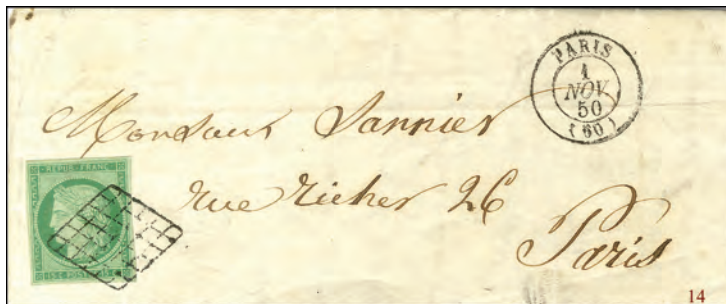 PARIS
1
NOV.
50
(60)
Monsieur Vannier
rue richer 26
Paris
REPUB. FRANC.
15 C. POSTES 15 C.
14